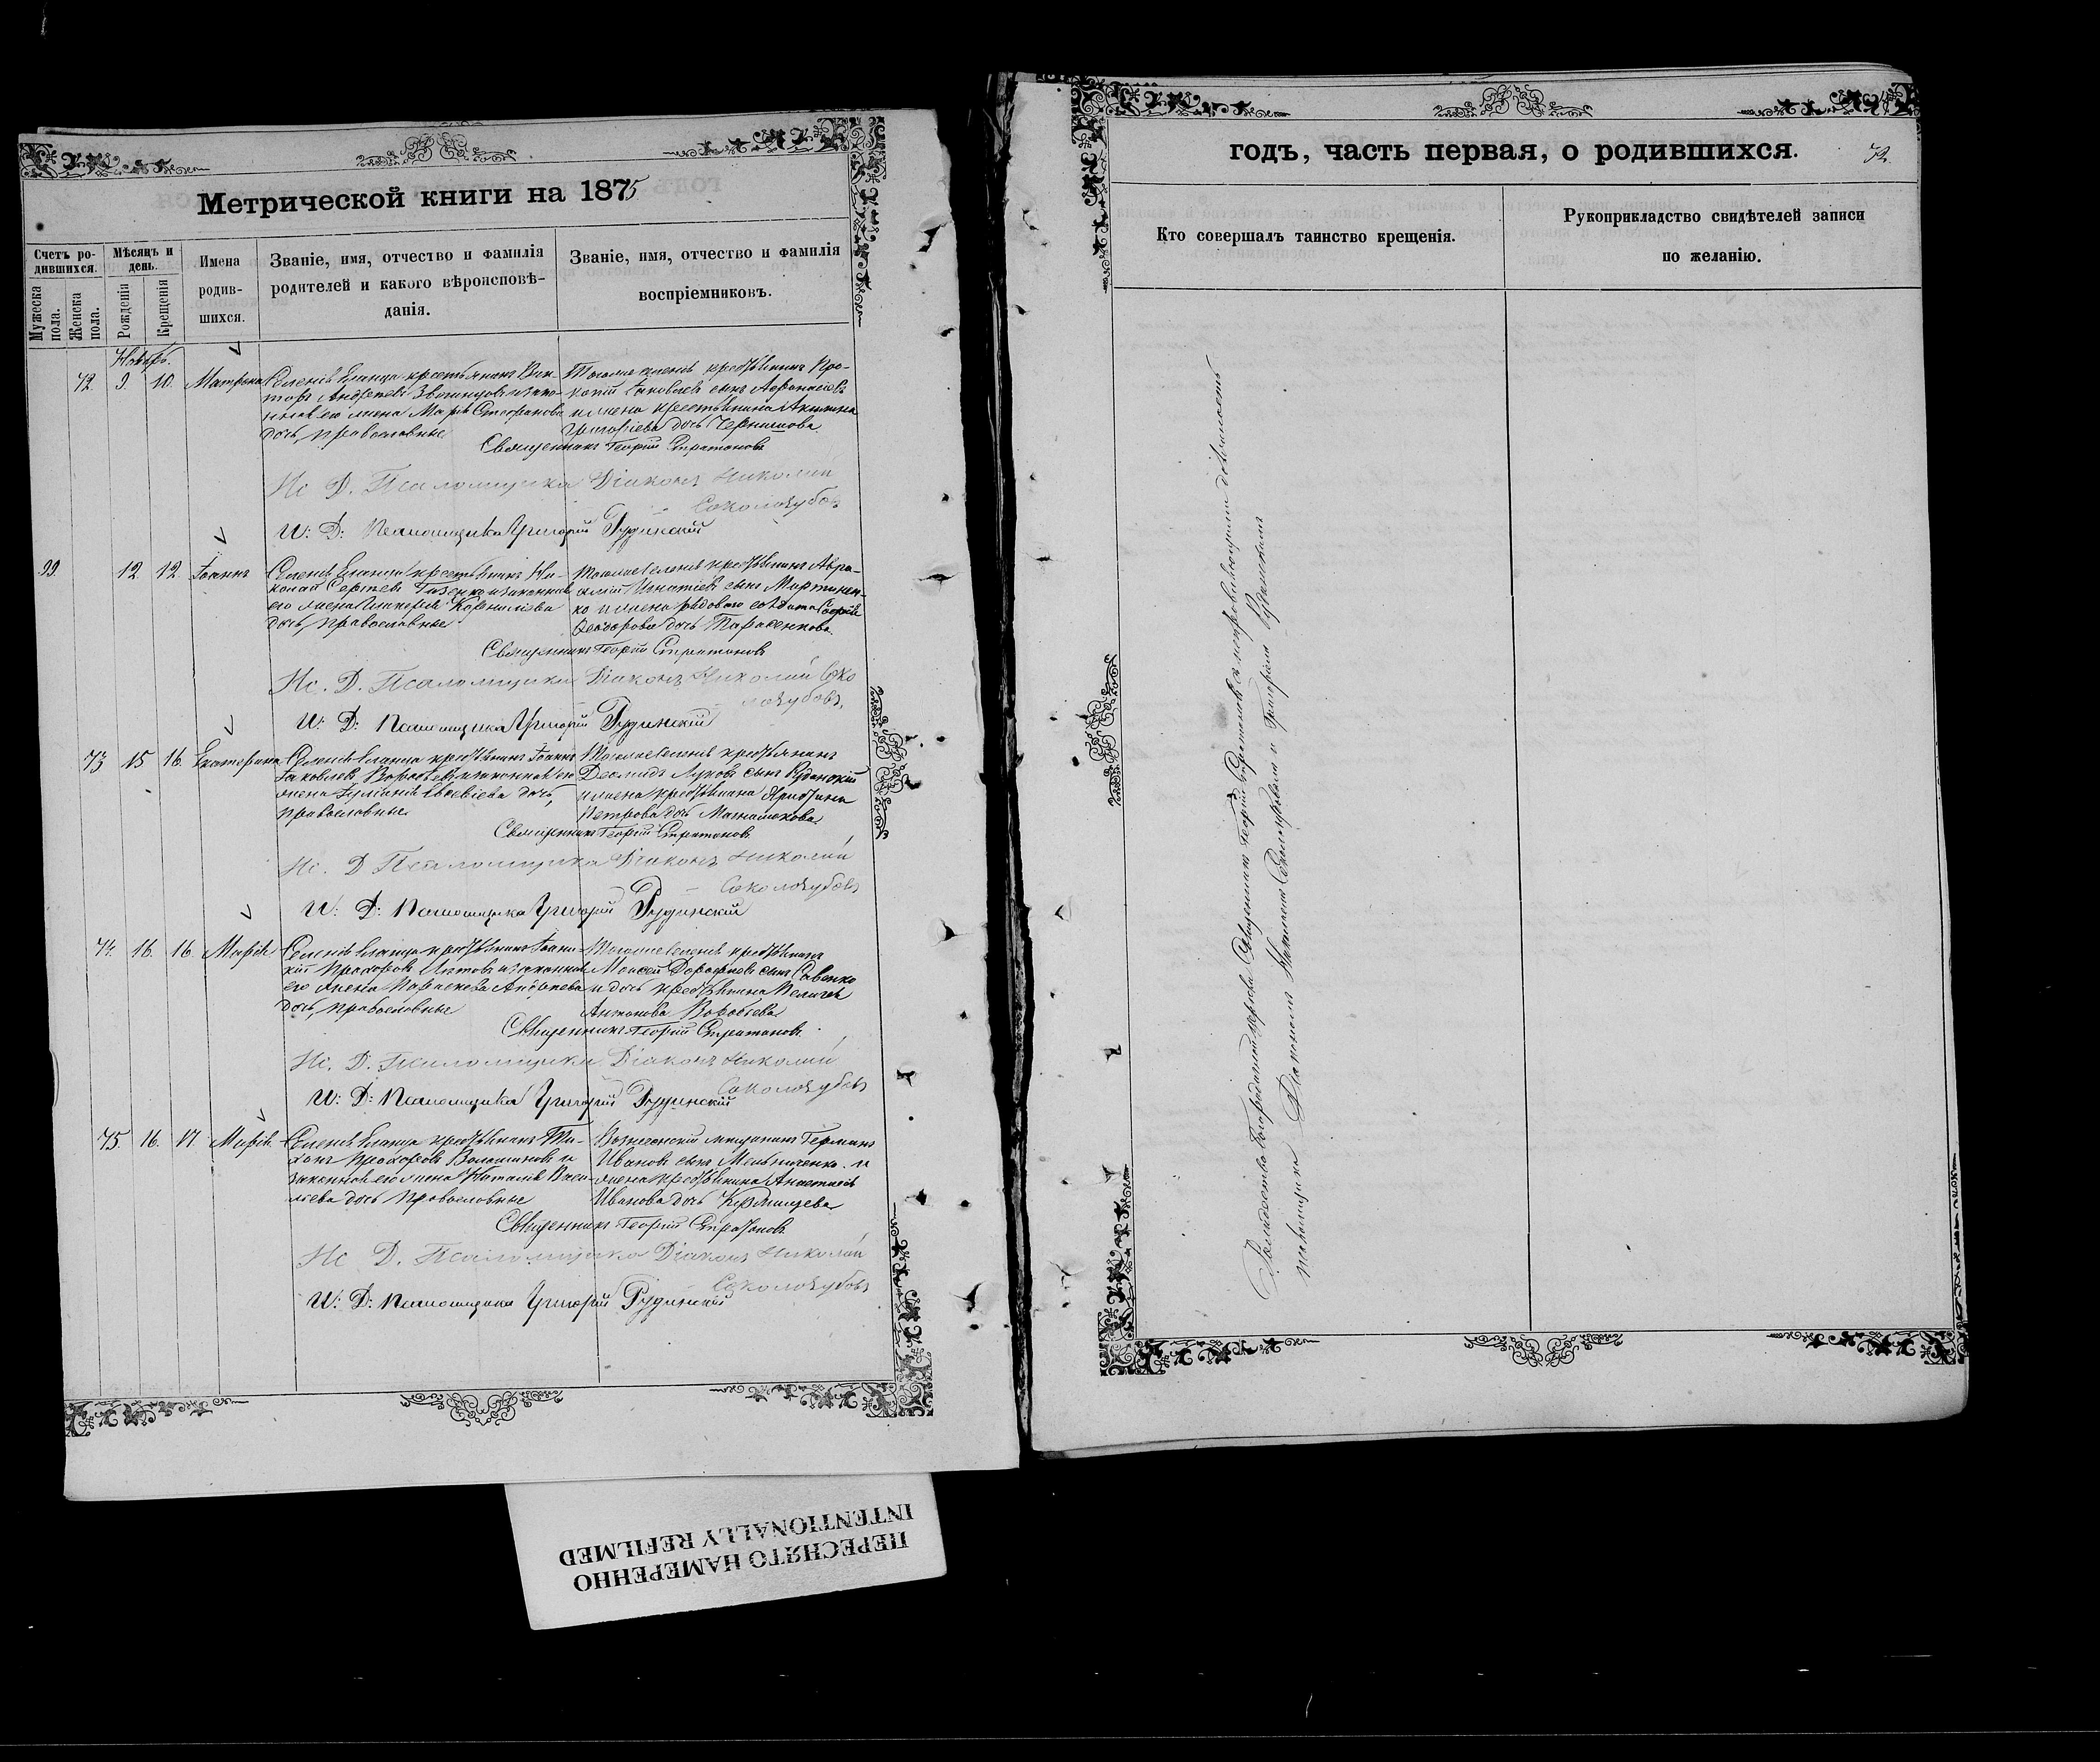 Метрической книги на 1875
Счетъ ро-
дившихся.
Мѣсяцъ и
день.
Имена
родив-
шихся.
Званіе, имя, отчество и фамилія
родителей и какого вѣроисповѣ-
данія.
Званіе, имя, отчество и фамилія
воспріемниковъ.
Мужеска
пола.
Женска
пола.
Рожденія
Крещенія
Ноябрь.
72. 9. 10. Матрона
Селенія Еланца крестьянинъ Вик-
торъ Андреевъ и закон-
ная его жена Марія Стефанова
дочь, православные
Тогоже селенія крестьянинъ Про-
копій Іаковлевъ сынъ Афанасьевъ
и жена крестьянина Акилина
Григорьева дочь Чернышова.
Священникъ Георгій Стратоновъ
Ис. Д. Псаломщика Діаконъ Николай
Соколозубовъ
И: Д: Псаломщика Григорій Рудинскій
99. 12. 12. Іоаннъ
Селенія Еланца крестьянинъ Ни-
колай Сергѣевъ и законная
его жена Гликерія Корнилова
дочь, православные
Тогоже селенія крестьянинъ Авра-
амій Игнатіевъ сынъ Мартинен-
ко и жена рядоваго солдата Софія
Ѳеодорова дочь Тарасенкова.
Священникъ Георгій Стратоновъ
Ис. Д. Псаломщика Діаконъ Николай Соко
лозубовъ.
И: Д: Псаломщика Григорій Рудинскій
73. 15. 16. Екатерина
Селенія Еланца крестьянинъ Іоаннъ
Іаковлевъ и законная его
жена Іуліанія дочь,
православные
Тогоже селенія крестьянинъ
Діомидъ Луковъ сынъ Рудинскій
и жена крестьянина Христина
Петрова дочь
Священникъ Георгій Стратоновъ
Ис. Д. Псаломщика Діаконъ Николай
Соколозубовъ
И: Д: Псаломщика Григорій Рудинскій
74. 16. 16. Марія
Селенія Еланца крестьянинъ Іоанни-
кій Прохоровъ и законная
его жена Параскева Андреева
дочь, православные
Тогоже селенія крестьянинъ
Моисей Дорофеевъ сынъ Савенко
и дочь крестьянина Пелагія
Антонова Воробьева
Священникъ Георгій Стратоновъ.
Ис. Д. Псаломщика Діаконъ Николай
Соколозубовъ
И: Д: Псаломщика Григорій Рудинскій
75. 16. 17. Марія
Селенія Еланца крестьянинъ Ти-
хонъ Прохоровъ и
законная его жена Наталія Васи-
льева дочь православные
Вознесенскій мещанинъ Германъ
Ивановъ сынъ Мельниченко и
жена крестьянина Анастасія
Иванова дочь
Священникъ Георгій Стратоновъ
Ис. Д. Псаломщика Діаконъ Николай
Соколозубовъ
И: Д: Псаломщика Григорій Рудинскій
годъ, часть первая, о родившихся.
72.
Кто совершалъ таинство крещенія.
Рукоприкладство свидѣтелей записи
по желанію.
Рождество Богородичной церкви Священникъ Георгій Стратоновъ съ исправляющими должность
псаломщика Діакономъ Николаемъ Соколозубовымъ и Григоріемъ Рудинскимъ
ПЕРЕСНЯТО НАМЕРЕННО
INTENTIONALLY REFILMED